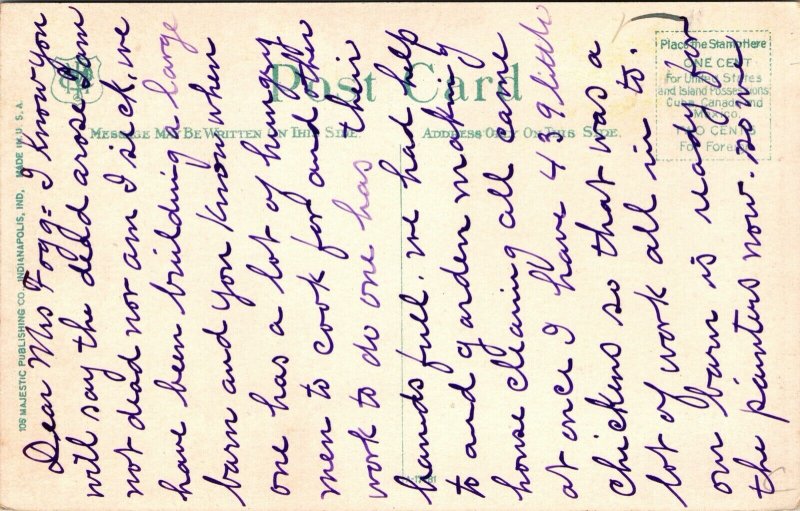 Dear Mrs Fogg = I know you
will say the dead arose I am
not dead nor am I sick, we
have been building a large
barn and you know when
one has a lot of hungry
men to cook for and other
work to do one has their
hands full. we had help
to and garden making
house cleaning all came
at once I have 439 little
chickens so that was a
lot of work all in to.
our barn is ready for
the painters now. now
Post Card
MESSAGE MAY BE WRITTEN ON THIS SIDE.
ADDRESS ONLY ON THIS SIDE.
Place the Stamp Here
ONE CENT
For United States
and Island Possessions
Cuba, Canada and
Mexico.
TWO CENTS
For Foreign
108 MAJESTIC PUBLISHING CO., INDIANAPOLIS, IND. MADE IN U. S. A.